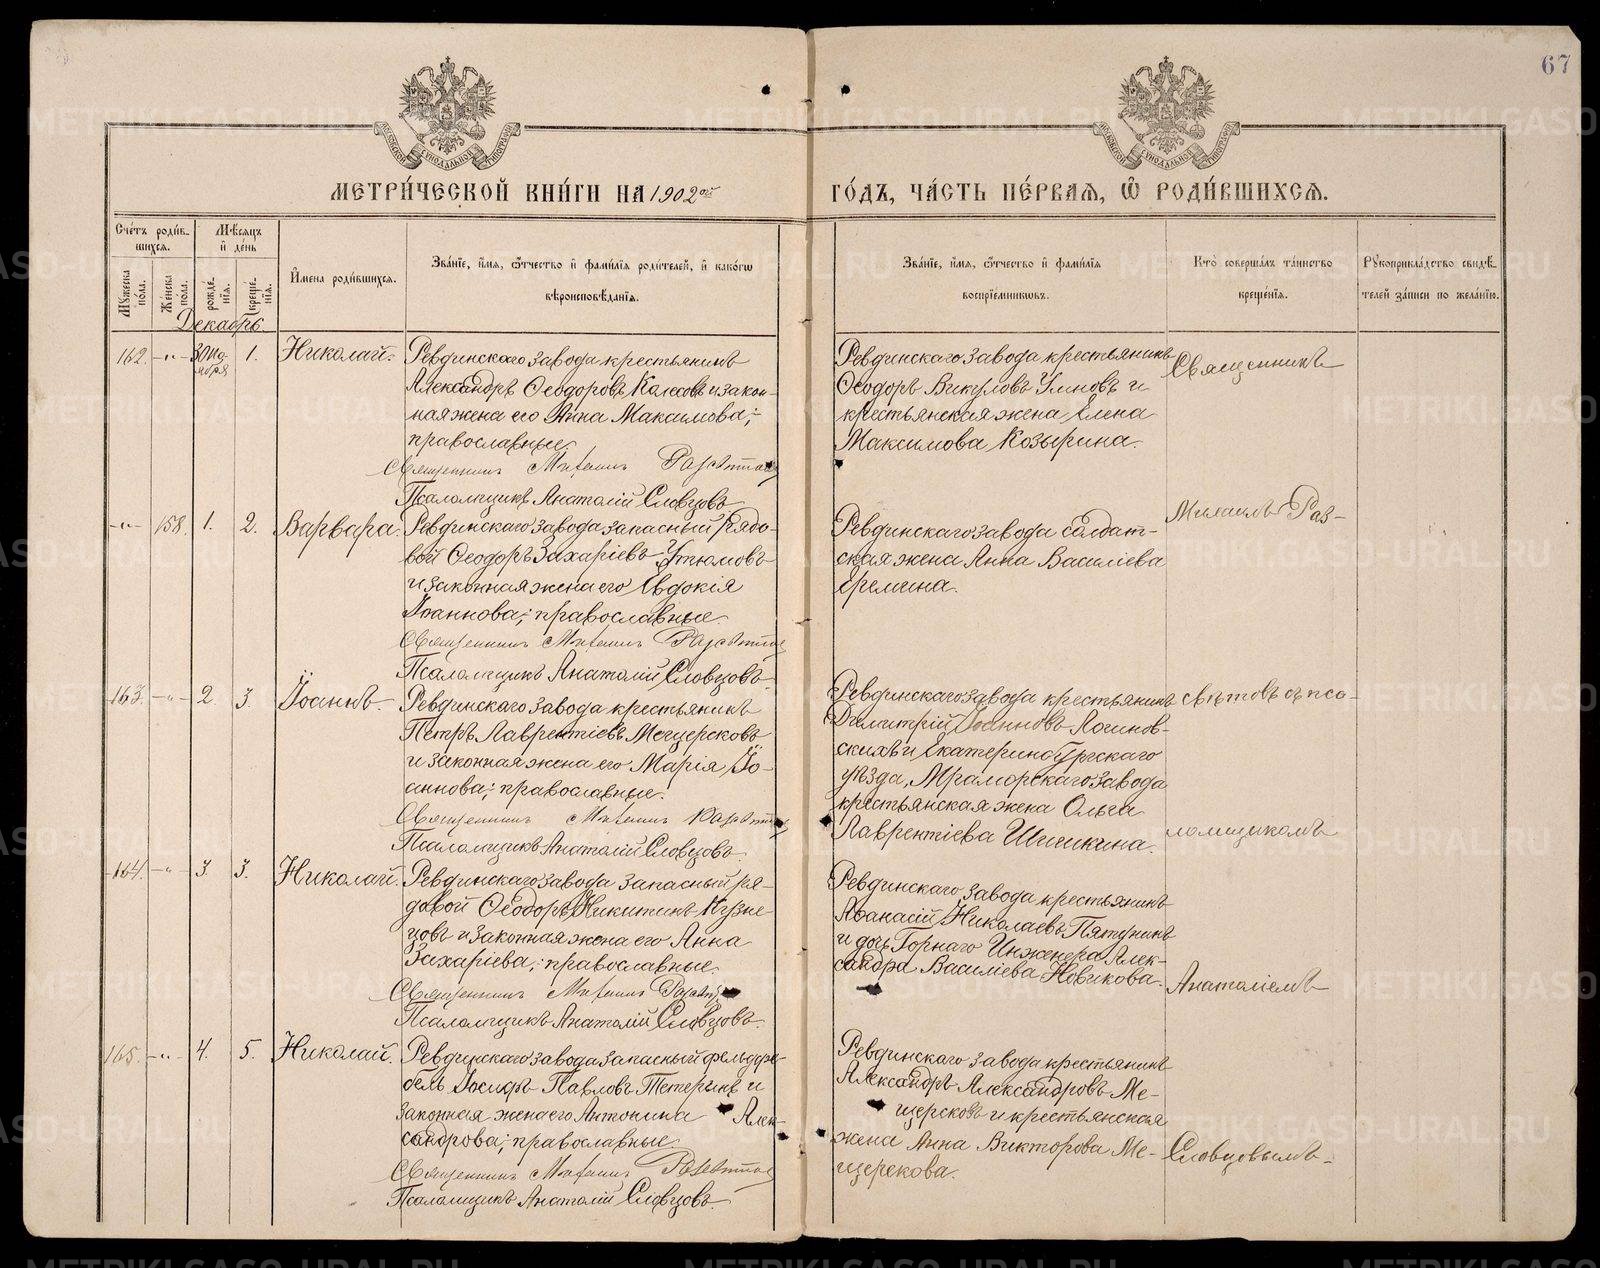 67
МОСКОВСКОЙ СѴНОДАЛЬНОЙ ТИПОГРАФІИ
МОСКОВСКОЙ СѴНОДАЛЬНОЙ ТИПОГРАФІИ
МЕТРИ́ЧЕСКОЙ КНИ́ГИ НА 1902ой
ГО́ДЪ, ЧА́СТЬ ПЕ́РВАѦ, Ѽ РОДИ́ВШИХСѦ.
Сче́тъ роди́в-
шихсѧ.
Мѣ́сѧцъ
и҆ де́нь
Мꙋжеска по́ла.
Же́нска по́ла.
рожде́-
нїѧ.
креще́-
нїѧ.
И҆мена роди́вшихсѧ.
Зва́нїе, и҆́мѧ, ѻ҆́тчество и҆ фами́лїѧ роди́телей, и҆ како́гѡ
вѣроисповѣ́данїѧ.
Зва́нїе, и҆́мѧ, ѻ҆́тчество и҆ фами́лїѧ
воспрїе́мникѡвъ.
Кто̀ соверша́лъ та́инство
креще́нїѧ.
Рꙋкоприкла́дство свидѣ́-
телей за́писи по жела́нїю.
Декабрь
162. -"- 30 Но-
ября 1. Николай.
Ревдинскаго завода крестьянинъ
Александръ Ѳеодоровъ Колесовъ и закон-
ная жена его Анна Максимова;
православные.
Священникъ Михаилъ
Псаломщикъ Анатолій Словцовъ
Ревдинскаго завода крестьянинъ
Ѳеодоръ Викуловъ Умновъ и
крестьянская жена Елена
Максимова Козырина.
Священникъ
-"- 158. 1. 2. Варвара.
Ревдинскаго завода запасный рядо-
вой Ѳеодоръ Захаріевъ Утюмовъ
и законная жена его Евдокія
Іоаннова; православные.
Священникъ Михаилъ
Псаломщикъ Анатолій Словцовъ.
Ревдинскаго завода солдат-
ская жена Анна Василіева
Еремина.
Михаилъ Раз-
163. -"- 2. 3. Іоаннъ.
Ревдинскаго завода крестьянинъ
Петръ Лаврентіевъ Мещерсковъ
и законная жена его Марія Іо-
аннова; православные.
Священникъ Михаилъ
Псаломщикъ Анатолій Словцовъ.
Ревдинскаго завода крестьянинъ
Димитрій Іоанновъ Логинов-
скихъ и Екатеринбургскаго
уѣзда, Мраморскаго завода
крестьянская жена Ольга
Лаврентіева Шишкина.
свѣтовъ съ псо-
ломщикомъ
164. -"- 3. 3. Николай.
Ревдинскаго завода запасный ря-
довой Ѳеодоръ Никитинъ Кузне-
цовъ и законная жена его Анна
Захаріева; православные.
Священникъ Михаилъ
Псаломщикъ Анатолій Словцовъ.
Ревдинскаго завода крестьянинъ
Аѳанасій Николаевъ Пятунинъ
и дочь Горнаго Инженера Алек-
сандра Василіева Новикова.
Анатоліемъ
165. -"- 4. 5. Николай.
Ревдинскаго завода запасный фельдфе-
бель Іосифъ Павловъ Тетеринъ и
законная жена его Антонина Алек-
сандрова; православные.
Священникъ Михаилъ
Псаломщикъ Анатолій Словцовъ.
Ревдинскаго завода крестьянинъ
Александръ Александровъ Ме-
щерсковъ и крестьянская
жена Анна Викторова Ме-
щерскова.
Словцовымъ.